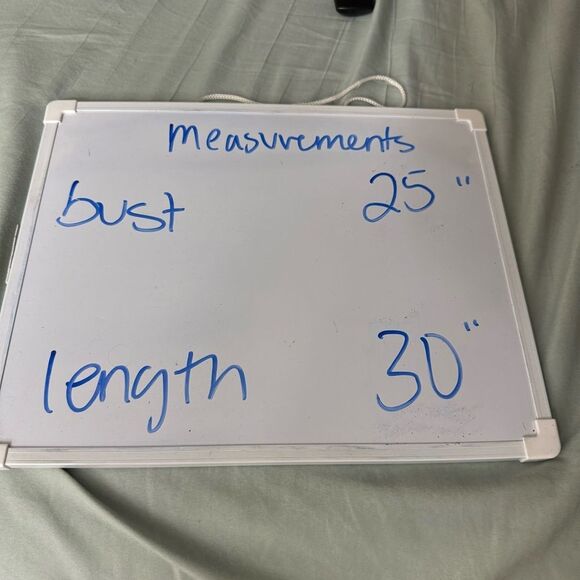 measurements
bust 25"
length 30"